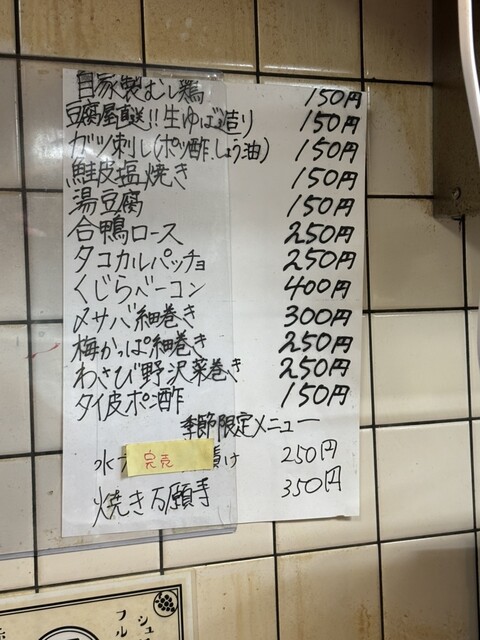 自家製むし鶏 150円
豆腐屋直送!!生ゆば造り 150円
ガツ刺し(ポン酢,しょう油) 150円
鮭皮塩焼き 150円
湯豆腐 150円
合鴨ロース 250円
タコカルパッチョ 250円
くじらベーコン 400円
〆サバ細巻き 300円
梅かっぱ細巻き 250円
わさび野沢菜巻き 250円
タイ皮ポン酢 150円
季節限定メニュー
水ナ 完売 漬け 250円
焼き万願寺 350円
シュー
フル